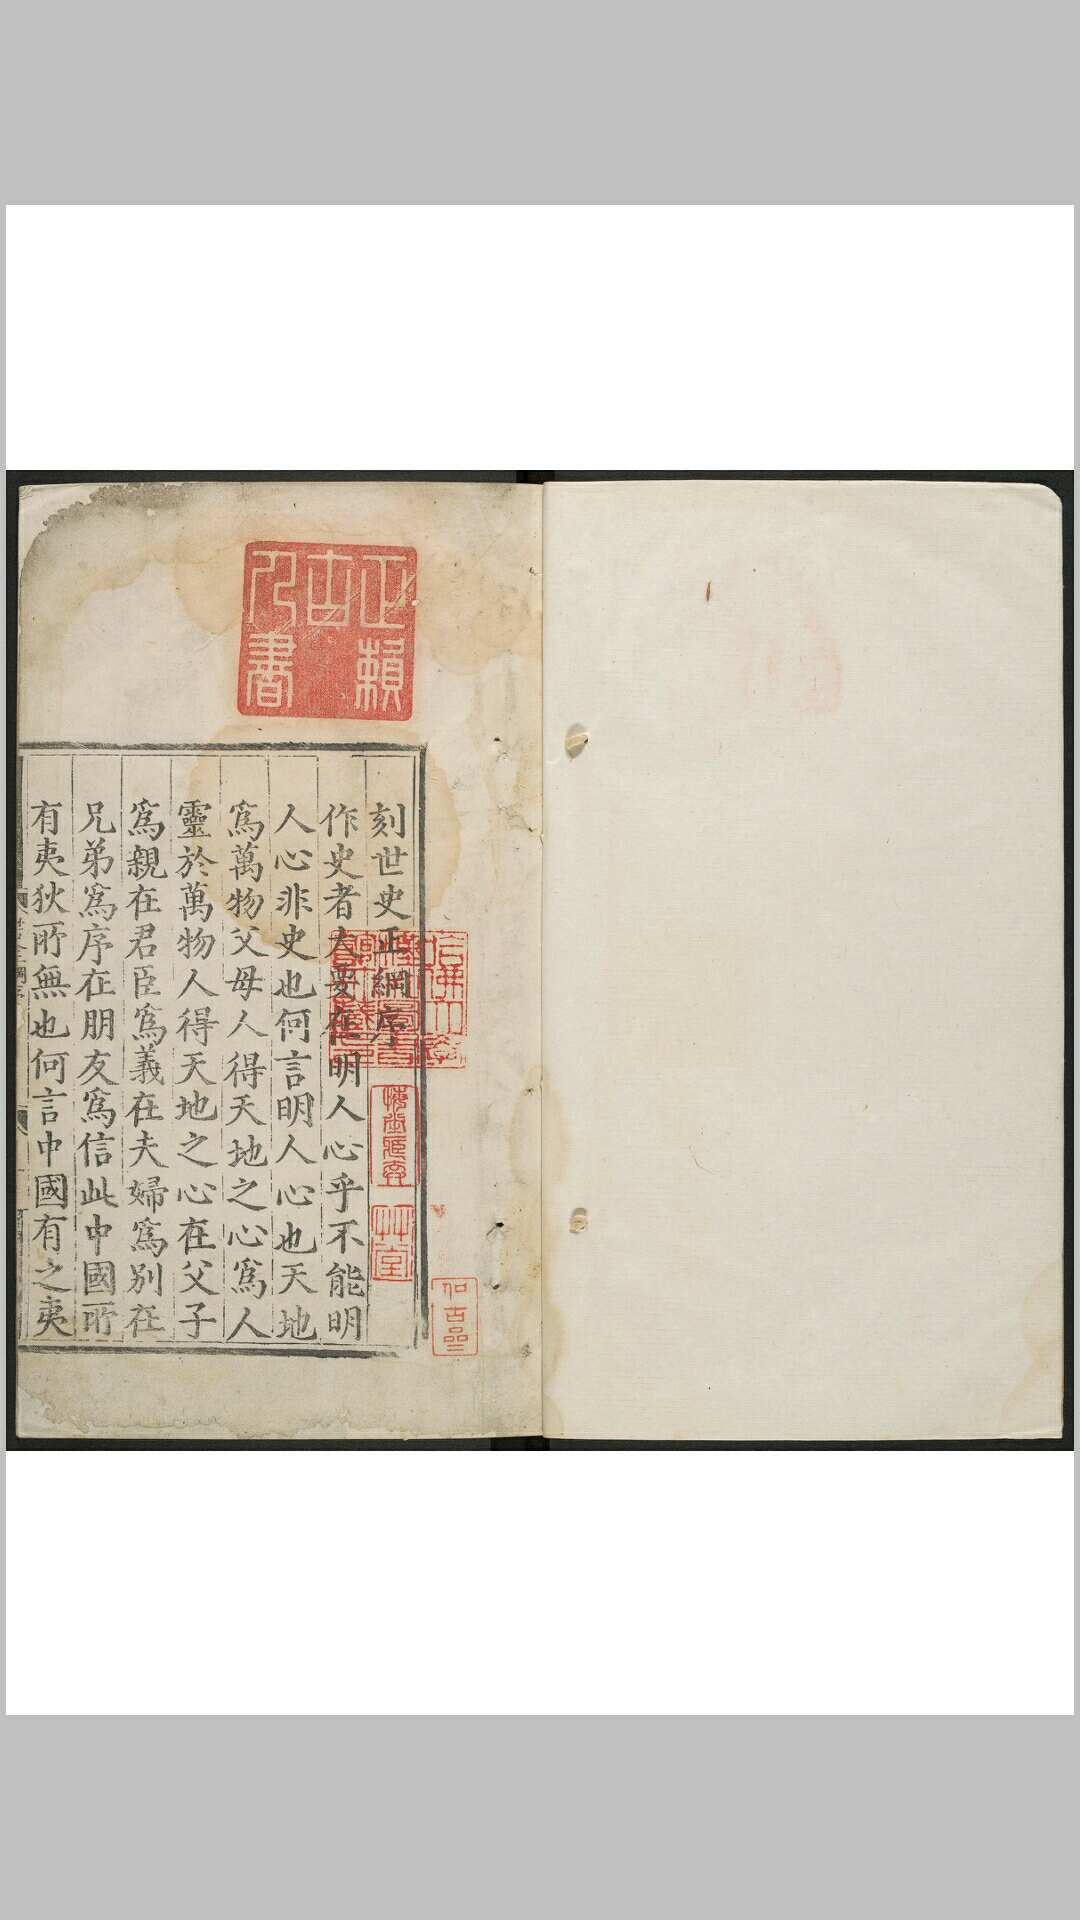 刻世史正綱序
作史者大要在明人心乎不能明
人心非史也何言明人心也天地
爲萬物父母人得天地之心爲人
靈於萬物人得天地之心在父子
爲親在君臣爲義在夫婦爲別在
兄弟爲序在朋友爲信此中國所
有夷狄所無也何言中國有之夷
正賴
古
乃書
艸堂